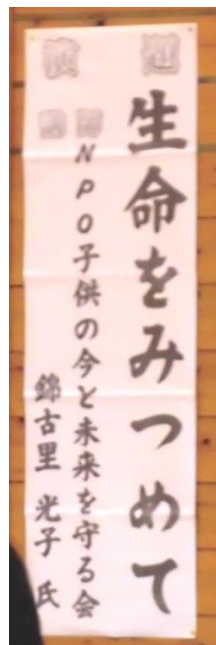 生命をみつめて
NPO子供の今と未来を守る会
錦古里 光子 氏